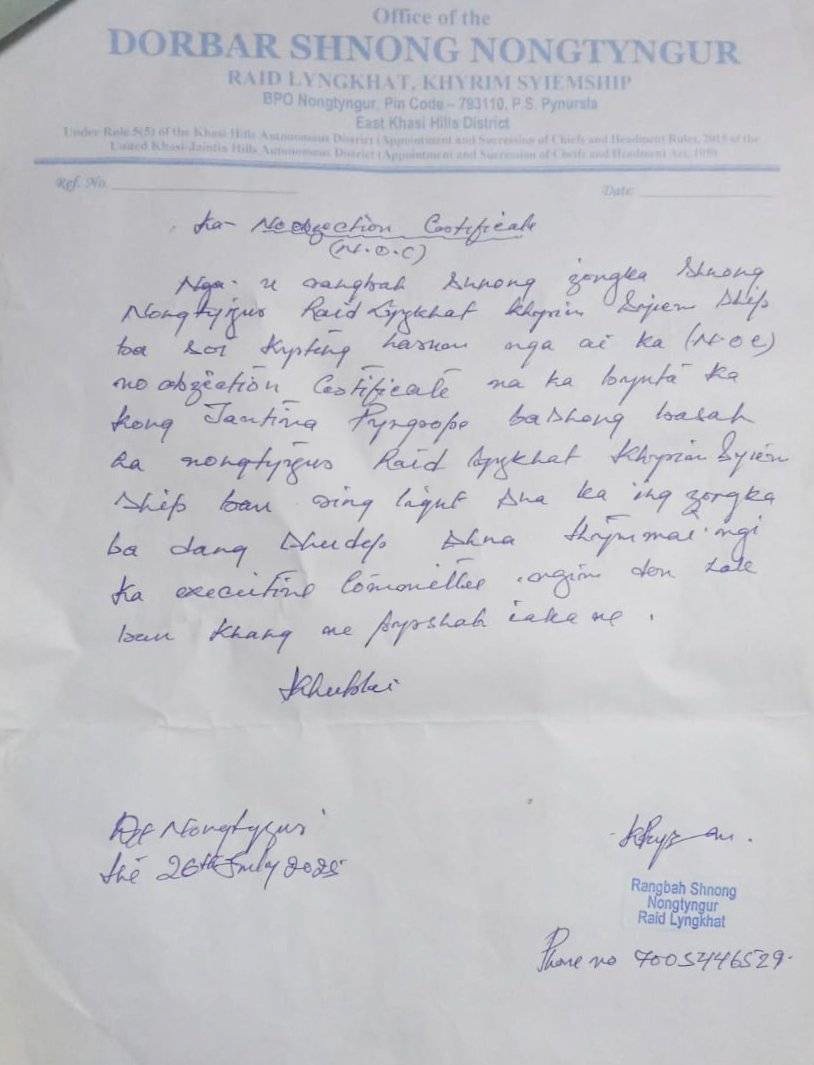 Office of the
DORBAR SHNONG NONGTYNGUR
RAID LYNGKHAT, KHYRIM SYIEMSHIP
BPO Nongtyngur, Pin Code – 793110, P.S. Pynursla
East Khasi Hills District
Under Rule 5(5) of the Khasi Hills Autonomous District (Appointment and Succession of Chiefs and Headmen) Rules, of the
United Khasi-Jaintia Hills Autonomous District (Appointment and Succession of Chiefs and Headmen) Act, 1959
Ref. No.
Date
Ka- No obzection Certificate
(N.O.C)
Nga u rangbah Shnong zongka Shnong
Raid Khyrim Syiem Ship
ba soi kyrteng harum nga ai ka (N.O.C)
no obzection Certificate na ka bynta ka
kong Pyngrope bashong basah
ha Raid Khyrim Syiem
Ship ban shna ka ing zongka
ba dang shudep shna thymmai ngi
ka executive Committee ngim don
ban khang ne pyrshah iaka ne.
Khublei
the 26th July 2025
Rangbah Shnong
Nongtyngur
Raid Lyngkhat
Phone no 7005446529